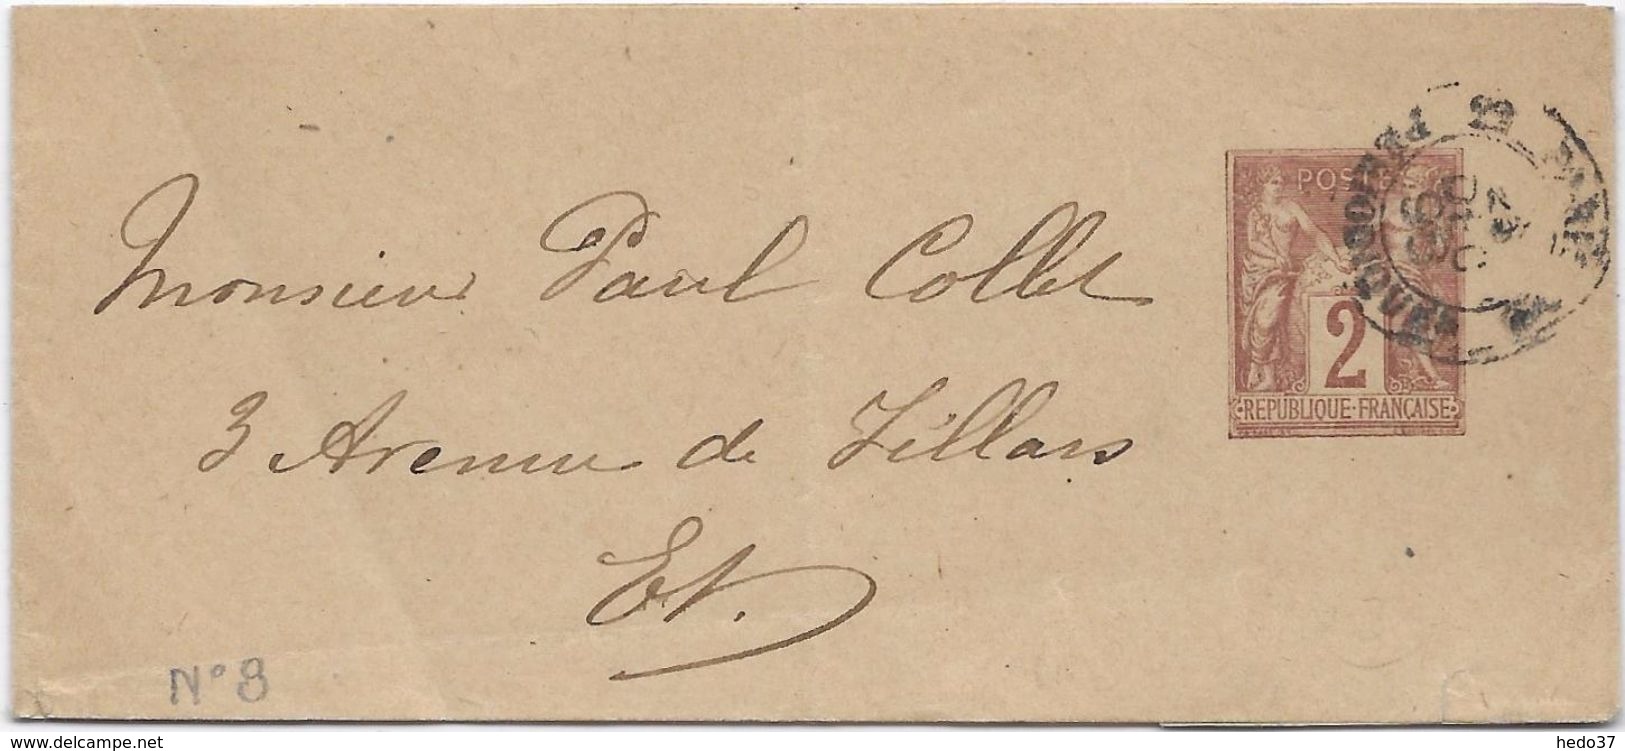 Monsieur Paul Collet
3 Avenue de Villars
Et.
N° 8
POSTES
2
REPUBLIQUE·FRANÇAISE
PERIODIQUES
www.delcampe.net
hedo37